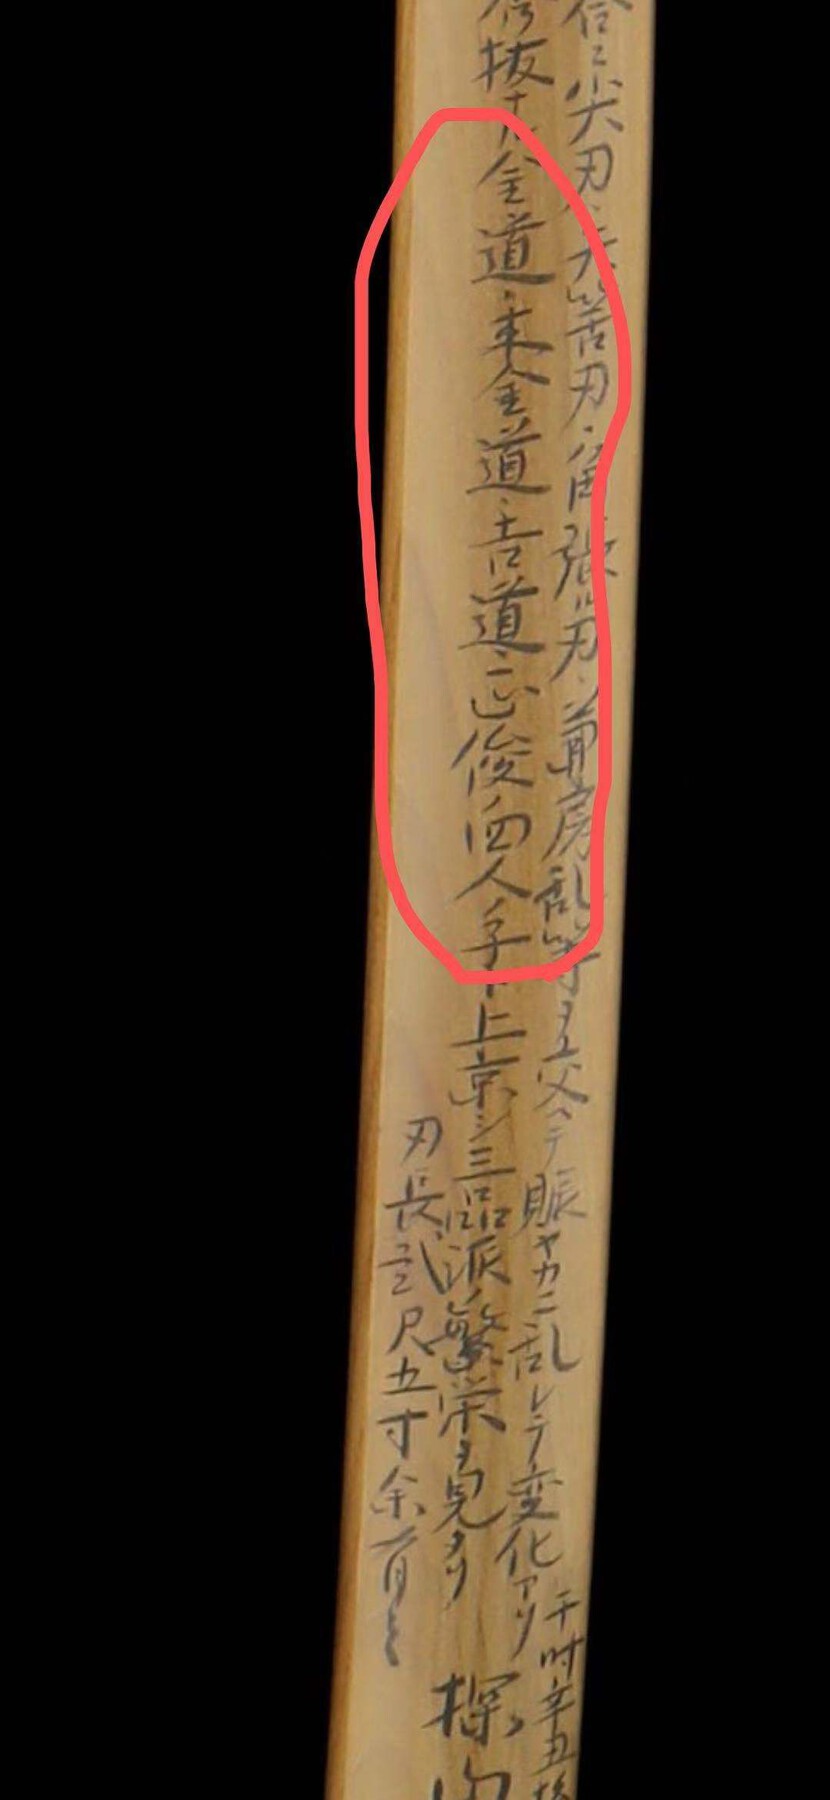 合ニ尖刃、矢筈刃、箱張ル刃、兼房乱等ヲ交ヘテ賑ヤカニ乱レテ変化アリ
抜ナル金道、来金道、吉道、正俊ノ四人ヲ上京シ三品派ノ繁栄ヲ見タリ
刃長弐尺五寸余有之
于時辛丑
探山